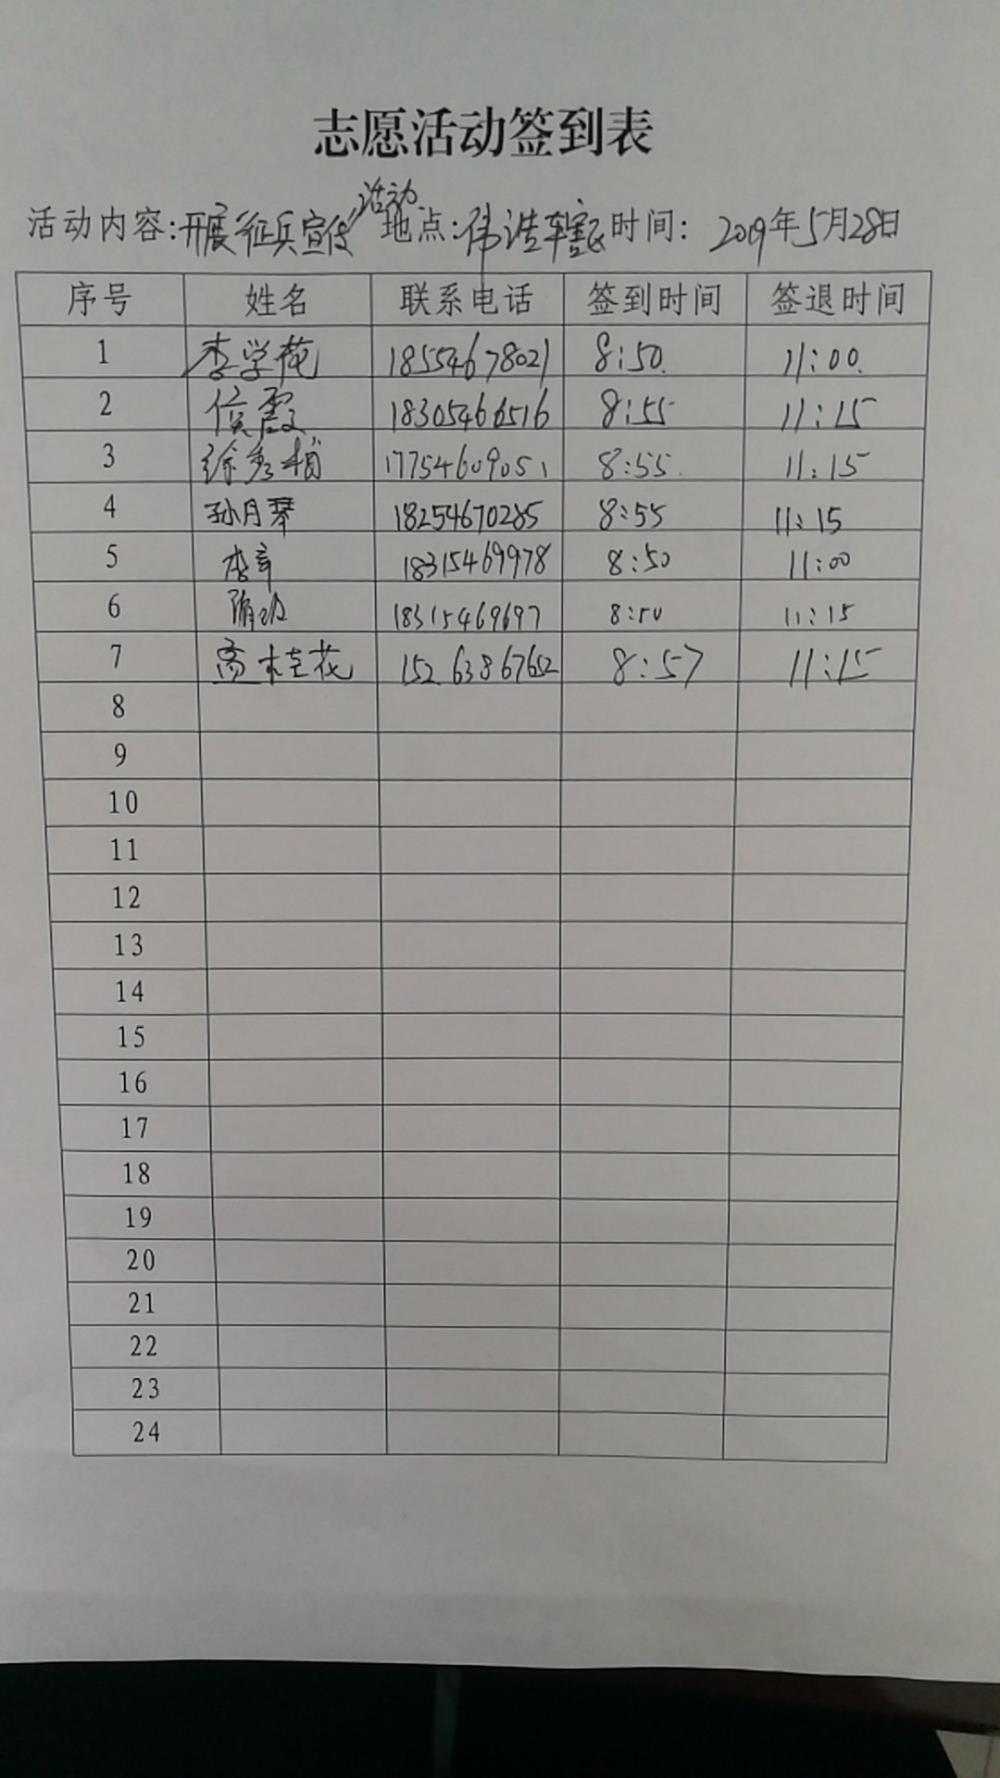 志愿活动签到表
活动内容:开展"征兵宣传"活动 地点:伟浩辖区 时间: 2019年5月28日
序号 姓名 联系电话 签到时间 签退时间
1 李学花 18554678021 8:50 11:00
2 侯霞 18305466516 8:55 11:15
3 徐秀梅 17754609051 8:55 11:15
4 孙月琴 18254670285 8:55 11:15
5 李章 18315469978 8:50 11:00
6 18315469697 8:50 11:15
7 高桂花 15263867652 8:57 11:15
8
9
10
11
12
13
14
15
16
17
18
19
20
21
22
23
24